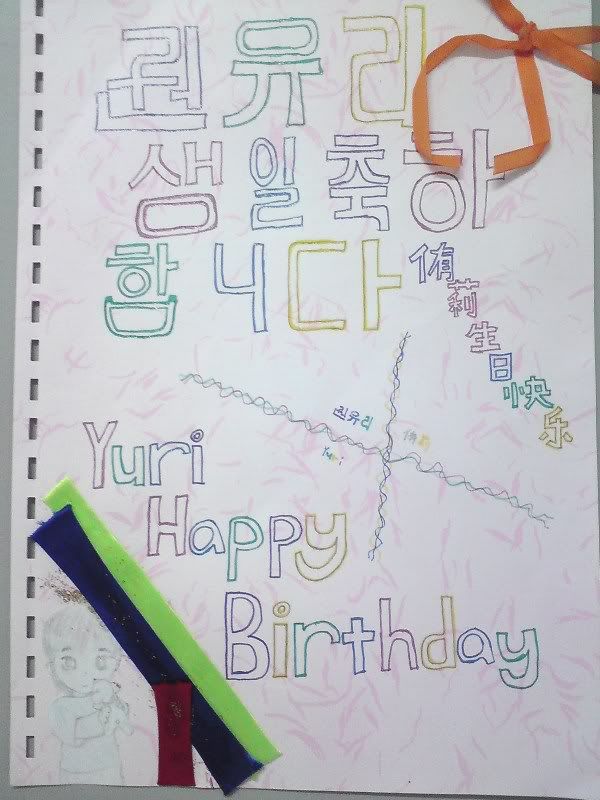 권유리
생일축하
합니다
侑莉生日快乐
권유리 侑莉
Yuri
Yuri
Happy
Birthday